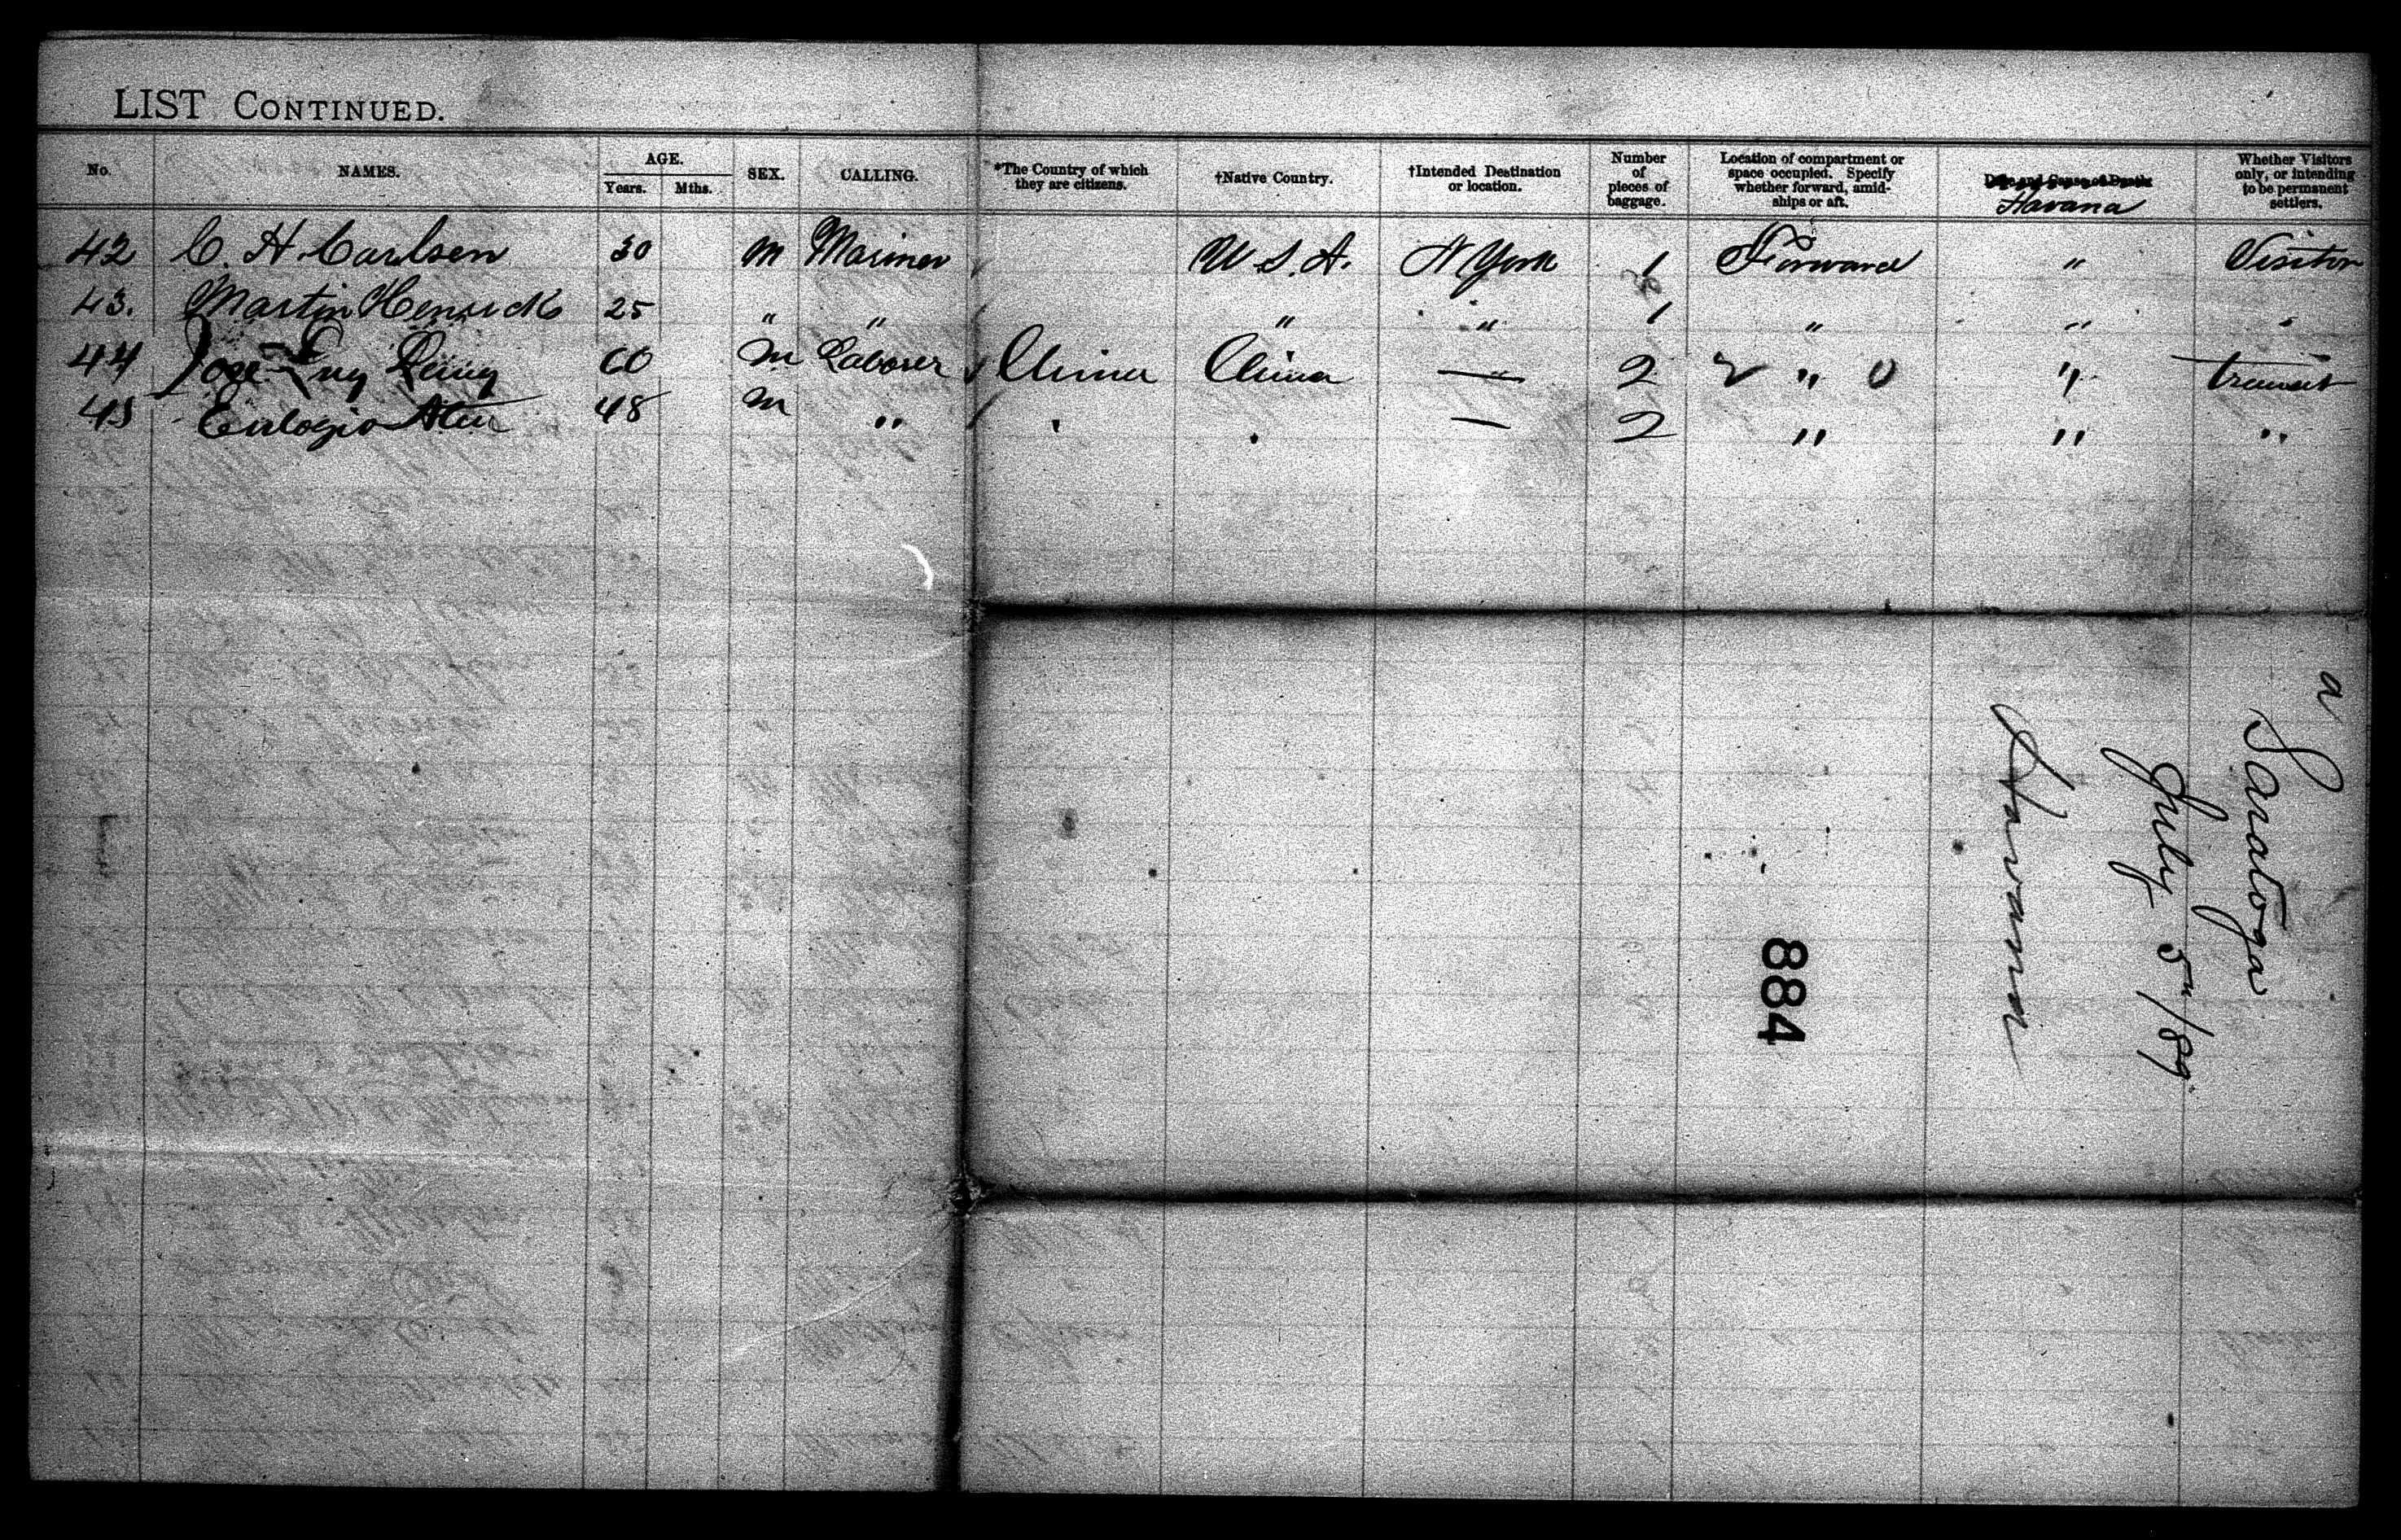 LIST CONTINUED.
No. NAMES. AGE. Years. Mths. SEX. CALLING. *The Country of which they are citizens. †Native Country. †Intended Destination or location. Number of pieces of baggage. Location of compartment or space occupied. Specify whether forward, amidships or aft. Date and Cause of Death Havana Whether Visitors only, or intending to be permanent settlers.
42 C. H. Carlsen 30 M Mariner U.S.A. N York 1 Forward " Visitor
43. Martin Henricks 25 " " " " 1 " " "
44 Jose 60 M Laborer China China — 2 " 0 " transit
45 Eulogio 48 M " " " — 2 " " "
a Saratoga
July 5th/89
Havana
884